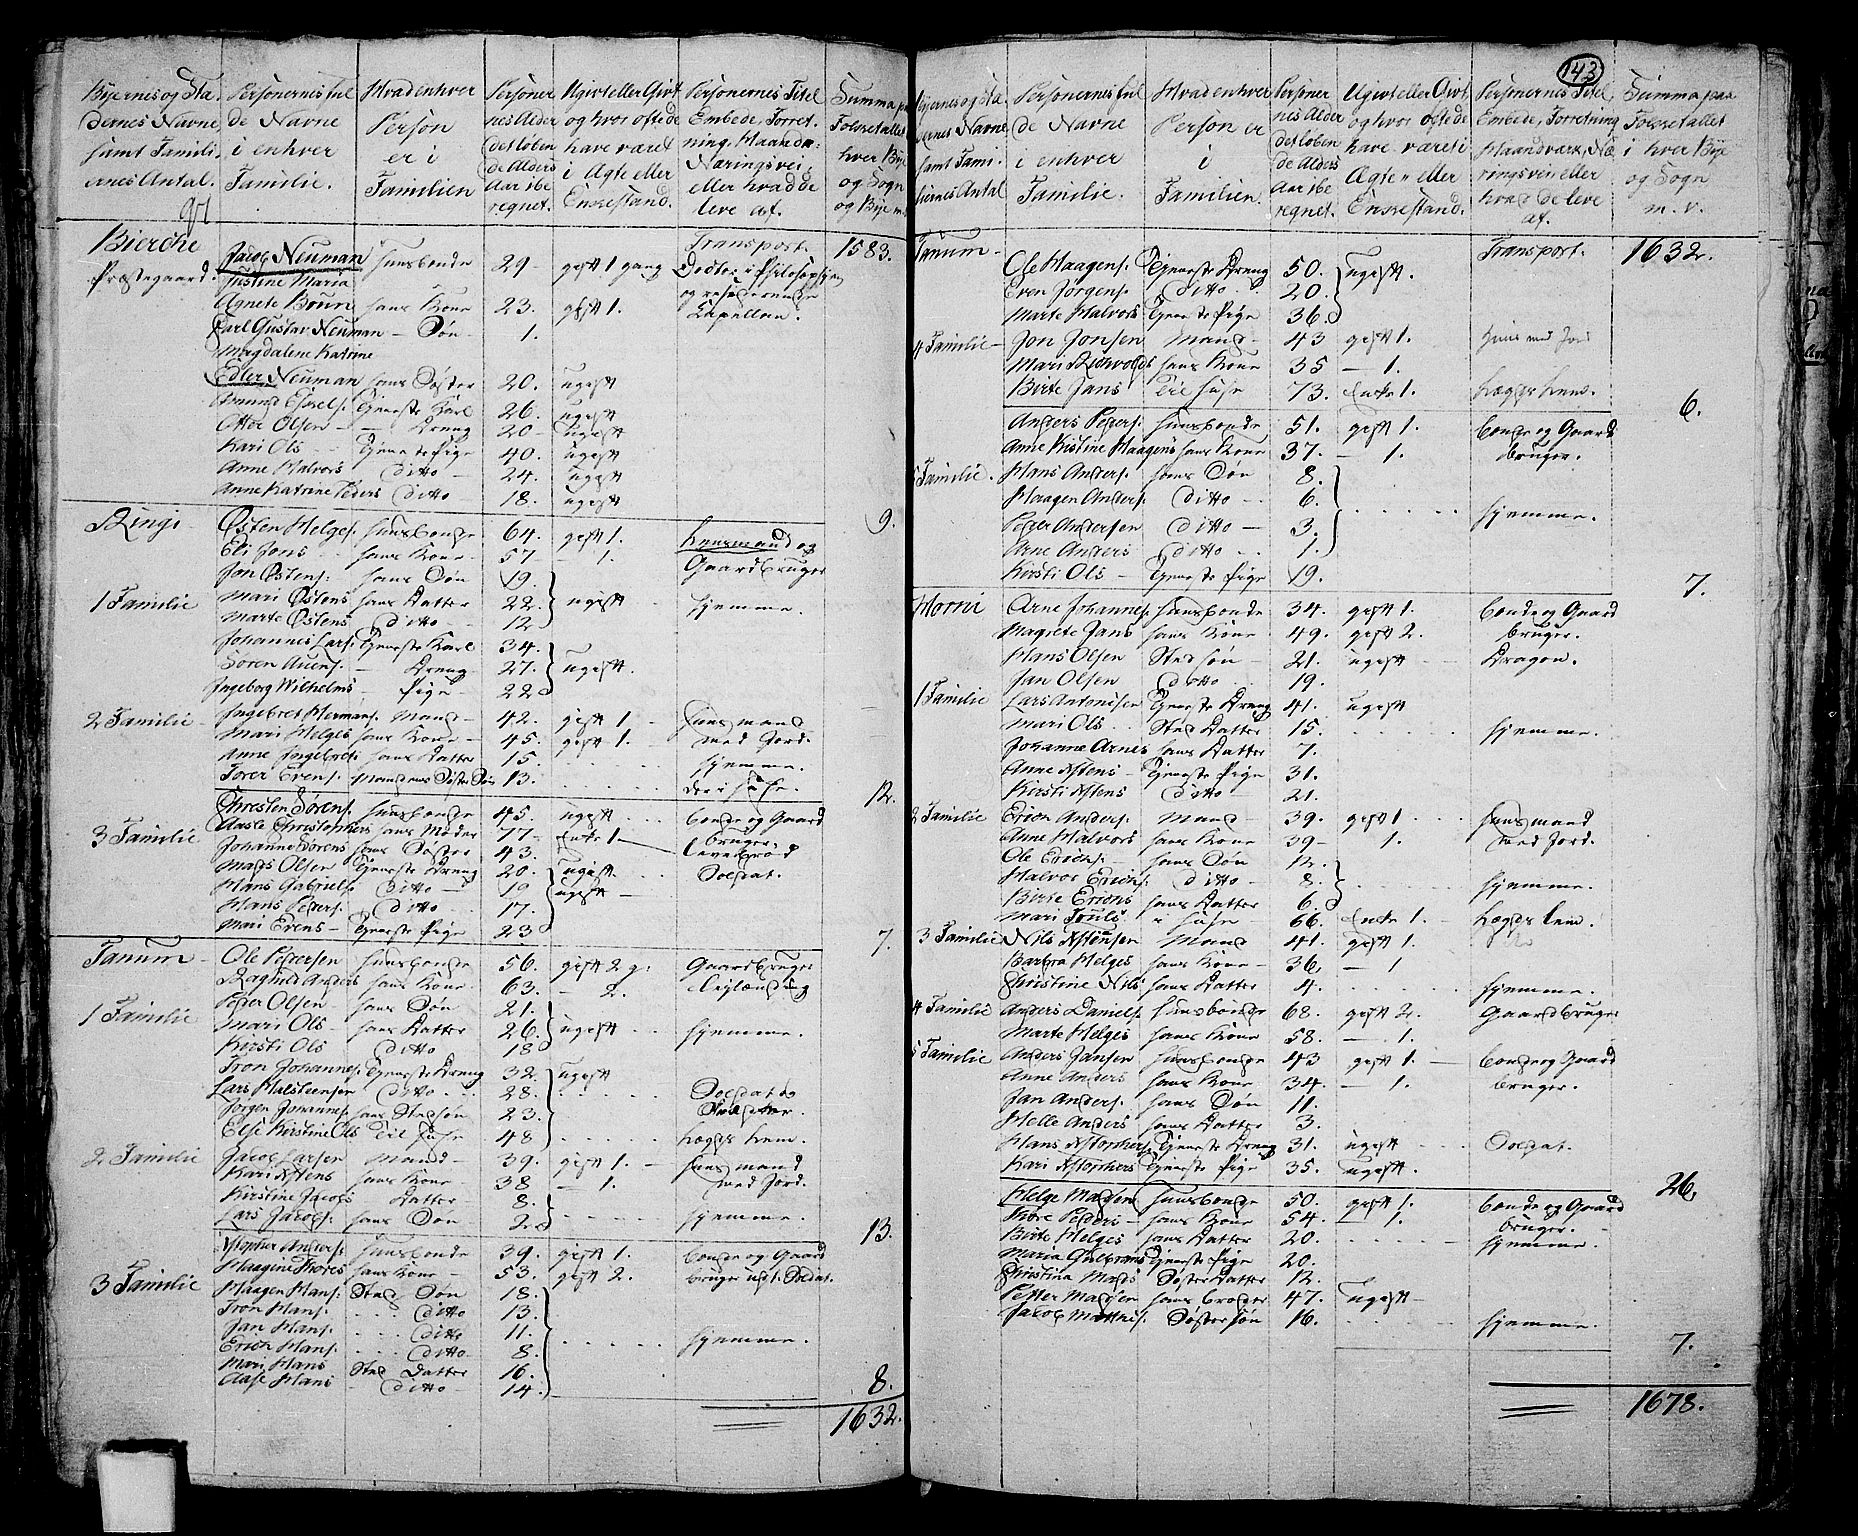 Byernes og Sta- Personernes ful- Hvad enhver Personer- Ugivt eller Givt Personernes Titel Summa paa
dernes Navne, de Navne Person nes Alder og hvor ofte de Embede, Forret- Folketallet
samt Famili- i enhver er i det løben- have været ning, Haandv: hver Bye
ernes Antal. Familie. Familien de Alders Aar ibe- i Ægte eller Næringsvej og Sogn
regnet. Enkestand. eller hvad de leve af. og Bye
Bierche Transport. 1583.
Præstegaard Jacob Neuman Huusbonde 29 gift 1 gang Doctor i Philosophien
Justine Maria og residerende
Agnete Bruun hans Kone 23. gift 1. Capellan.
Carl Gustav Neuman – Søn – 1.
Magdalene Katrine
Edler Neuman hans Søster 20. ugift
Tjeneste Karl 26. ugift
Otto Olsen – Dreng 20 – ugift
Kari Ols – Tjeneste Pige 40. ugift
Anne Halvors ditto 24. ugift
Anne Katrine Peders ditto – 18. ugift
9.
Ringi Østen Helges. Huusbonde 64. gift 1. Lensmand og
Eli Jons hans Kone 57 – 1. Gaardbruger
Jon Østens. hans Søn 19.
1 Familie Mari Østens hans Datter 22. ugift hjemme.
Marte Østens ditto 12
Johannes Lars. Tjeneste Karl 34.
Søren – Dreng 27. ugift.
Ingeborg Wilhelms – Pige – 22
2 Familie – Ingebret Hermans. Mand – 42. gift 1 – Huusmand
Mari Helges hans Kone – 45. gift 1. – med Jord.
Anne Ingebrets hans Datter 15. hjemme.
Torer Evens. Mandens Søster Søn 13. der i Huse.
12.
Chresten Sørens. Huusbonde 45. ugift bonde og Gaard
Aasle Christophers hans Moder 77 – Enke 1 – bruger.
3 Familie Johanne Sørens hans Søster 43. levebrød
Mads Olsen Tjeneste Dreng 20. ugift. Soldat.
Hans Gabriels. ditto – 19 ugift –
Hans Peders. ditto – 17.
Mari Evens – Tjeneste Pige 23
7.
Tanum – Ole Pedersen Huusbonde 56. gift 2 g. Gaardbruger
Ragnild Anders hans Kone – 63. – 2. leylænding
Peder Olsen hans Søn 21.
1 Familie Mari Ols – hans Datter 26. ugift hjemme.
Kirsti Ols ditto 18
Tron Johannes. Tjeneste Dreng 32. ugift
Lars Halsteensen ditto 28. Soldat
Jørgen Johannes. hans Stedsøn 23.
Else Kirstine Ols Til Huse 48 Lægds Lem.
2 Familie Jacob Larsen Mand – 39. gift 1. – Huusmand
Kari Astens hans Kone – 38 – 1. med Jord.
Kirstine Jacobs Datter – 8.
Lars Jacobs. hans Søn 2. hjemme.
13.
Astopher Anders. Huusbonde 39. gift 1. bonde og Gaard
Haagine Thores hans Kone – 53. gift 2. bruger udt. Soldat.
3 Familie Haagen Hans. Sted Søn 18.
Tron Hans. ditto 13.
Jan Hans. ditto 11. hjemme.
Erich Hans. ditto 8.
Mari Hans Sted Datter 16.
Aase Hans – ditto – 14.
8.
1632.
143
Byernes og Sta- Personernes ful- Hvad enhver Personer- Ugivt eller Givt, Personernes Titel, Summa paa
dernes Navne de Navne Person er nes Alder og hvor ofte de Embede, Forretning Folketallet
samt Fami- i enhver i det løben- have været i Haandværk, Næ- i hver Bye
liernes Antal Familie. Familien. de Alders Aar ibe- Ægte- eller ringsvei eller og Sogn
regnet. Enkestand. hvad de leve af. m. v.
Tanum – Transport. 1632.
Ole Haagens. Tjeneste Dreng 50. ugift.
Even Jørgens. ditto 20.
Marte Halvors Tjeneste Pige 36.
4 Familie – Jon Jonsen Mand – 43 gift 1. Huus med Jord
Mari hans Kone 35 – 1.
Birte Jans Til Huse – 73. Enke 1. Lægds Lem.
6.
Anders Peders. Huusbonde 51. gift 1. bonde og Gaard
Anne Kistine Haagens hans Kone 37. – 1. bruger.
5 Familie. Hans Anders. hans Søn 8.
Haagen Anders. ditto – 6.
Peder Andersen ditto – 3. hjemme.
Arne Anders ditto 1.
Kirsti Ols – Tjeneste Pige 19.
7.
Horni Arne Johannes. Huusbonde 34. gift 1. bonde og Gaard
Magrete Jans hans Kone 49. gift 2. bruger.
Hans Olsen Stedsøn – 21. ugift Dragon.
Jan Olsen ditto 19.
1 Familie Lars Antonisen Tjeneste Dreng 41. ugift
Mari Ols Sted Datter 15. hjemme.
Johanne Arnes hans Datter 7.
Anne Astens – Tjeneste Pige 31.
Kirsti Astens ditto – 21.
2 Familie Erich Anders. Mand – 39. gift 1. Huusmand
Anne Halvors hans Kone 39 – 1. med Jord.
Ole Erichs. – hans Søn 12.
Halvor Erichs. ditto – 8. hjemme.
Birte Erichs hans Datter 6.
Mari Truls i Huse – 66. Enke 1 – Lægds Lem.
3 Familie Nils Astønsen Mand 41. gift 1.
Barbra Helges hans Kone – 36. – 1
Christine Nils hans Datter 4. hjemme.
4 Familie Anders Daniels. Huusbonde 68. gift 2. Gaardbruger
Marte Helges hans Kone 58. – 1.
5 Familie Anders Jansen Huusbonde 43 gift 1. – bonde og Gaard
Anne Anders hans Kone 34. – 1. bruger.
Jan Anders. hans Søn 11.
Helle Anders hans Datter 3.
Hans Astophers. Tjeneste Dreng 31. ugift Soldat.
Kari Astophers Tjeneste Pige 35. ugift.
26.
Helge Madsen Huusbonde 50. gift 1. bonde og Gaard
Thore Peders – hans Kone 54. – 1. bruger.
Birte Helges hans Datter 20. hjemme.
Maria Gulbrans Tjeneste Pige 20.
Christina Mads Søster Datter 12.
Petter Madsen hans broder 47. ugift –
Jacob Søster søn 16. hjemme.
7.
1678.